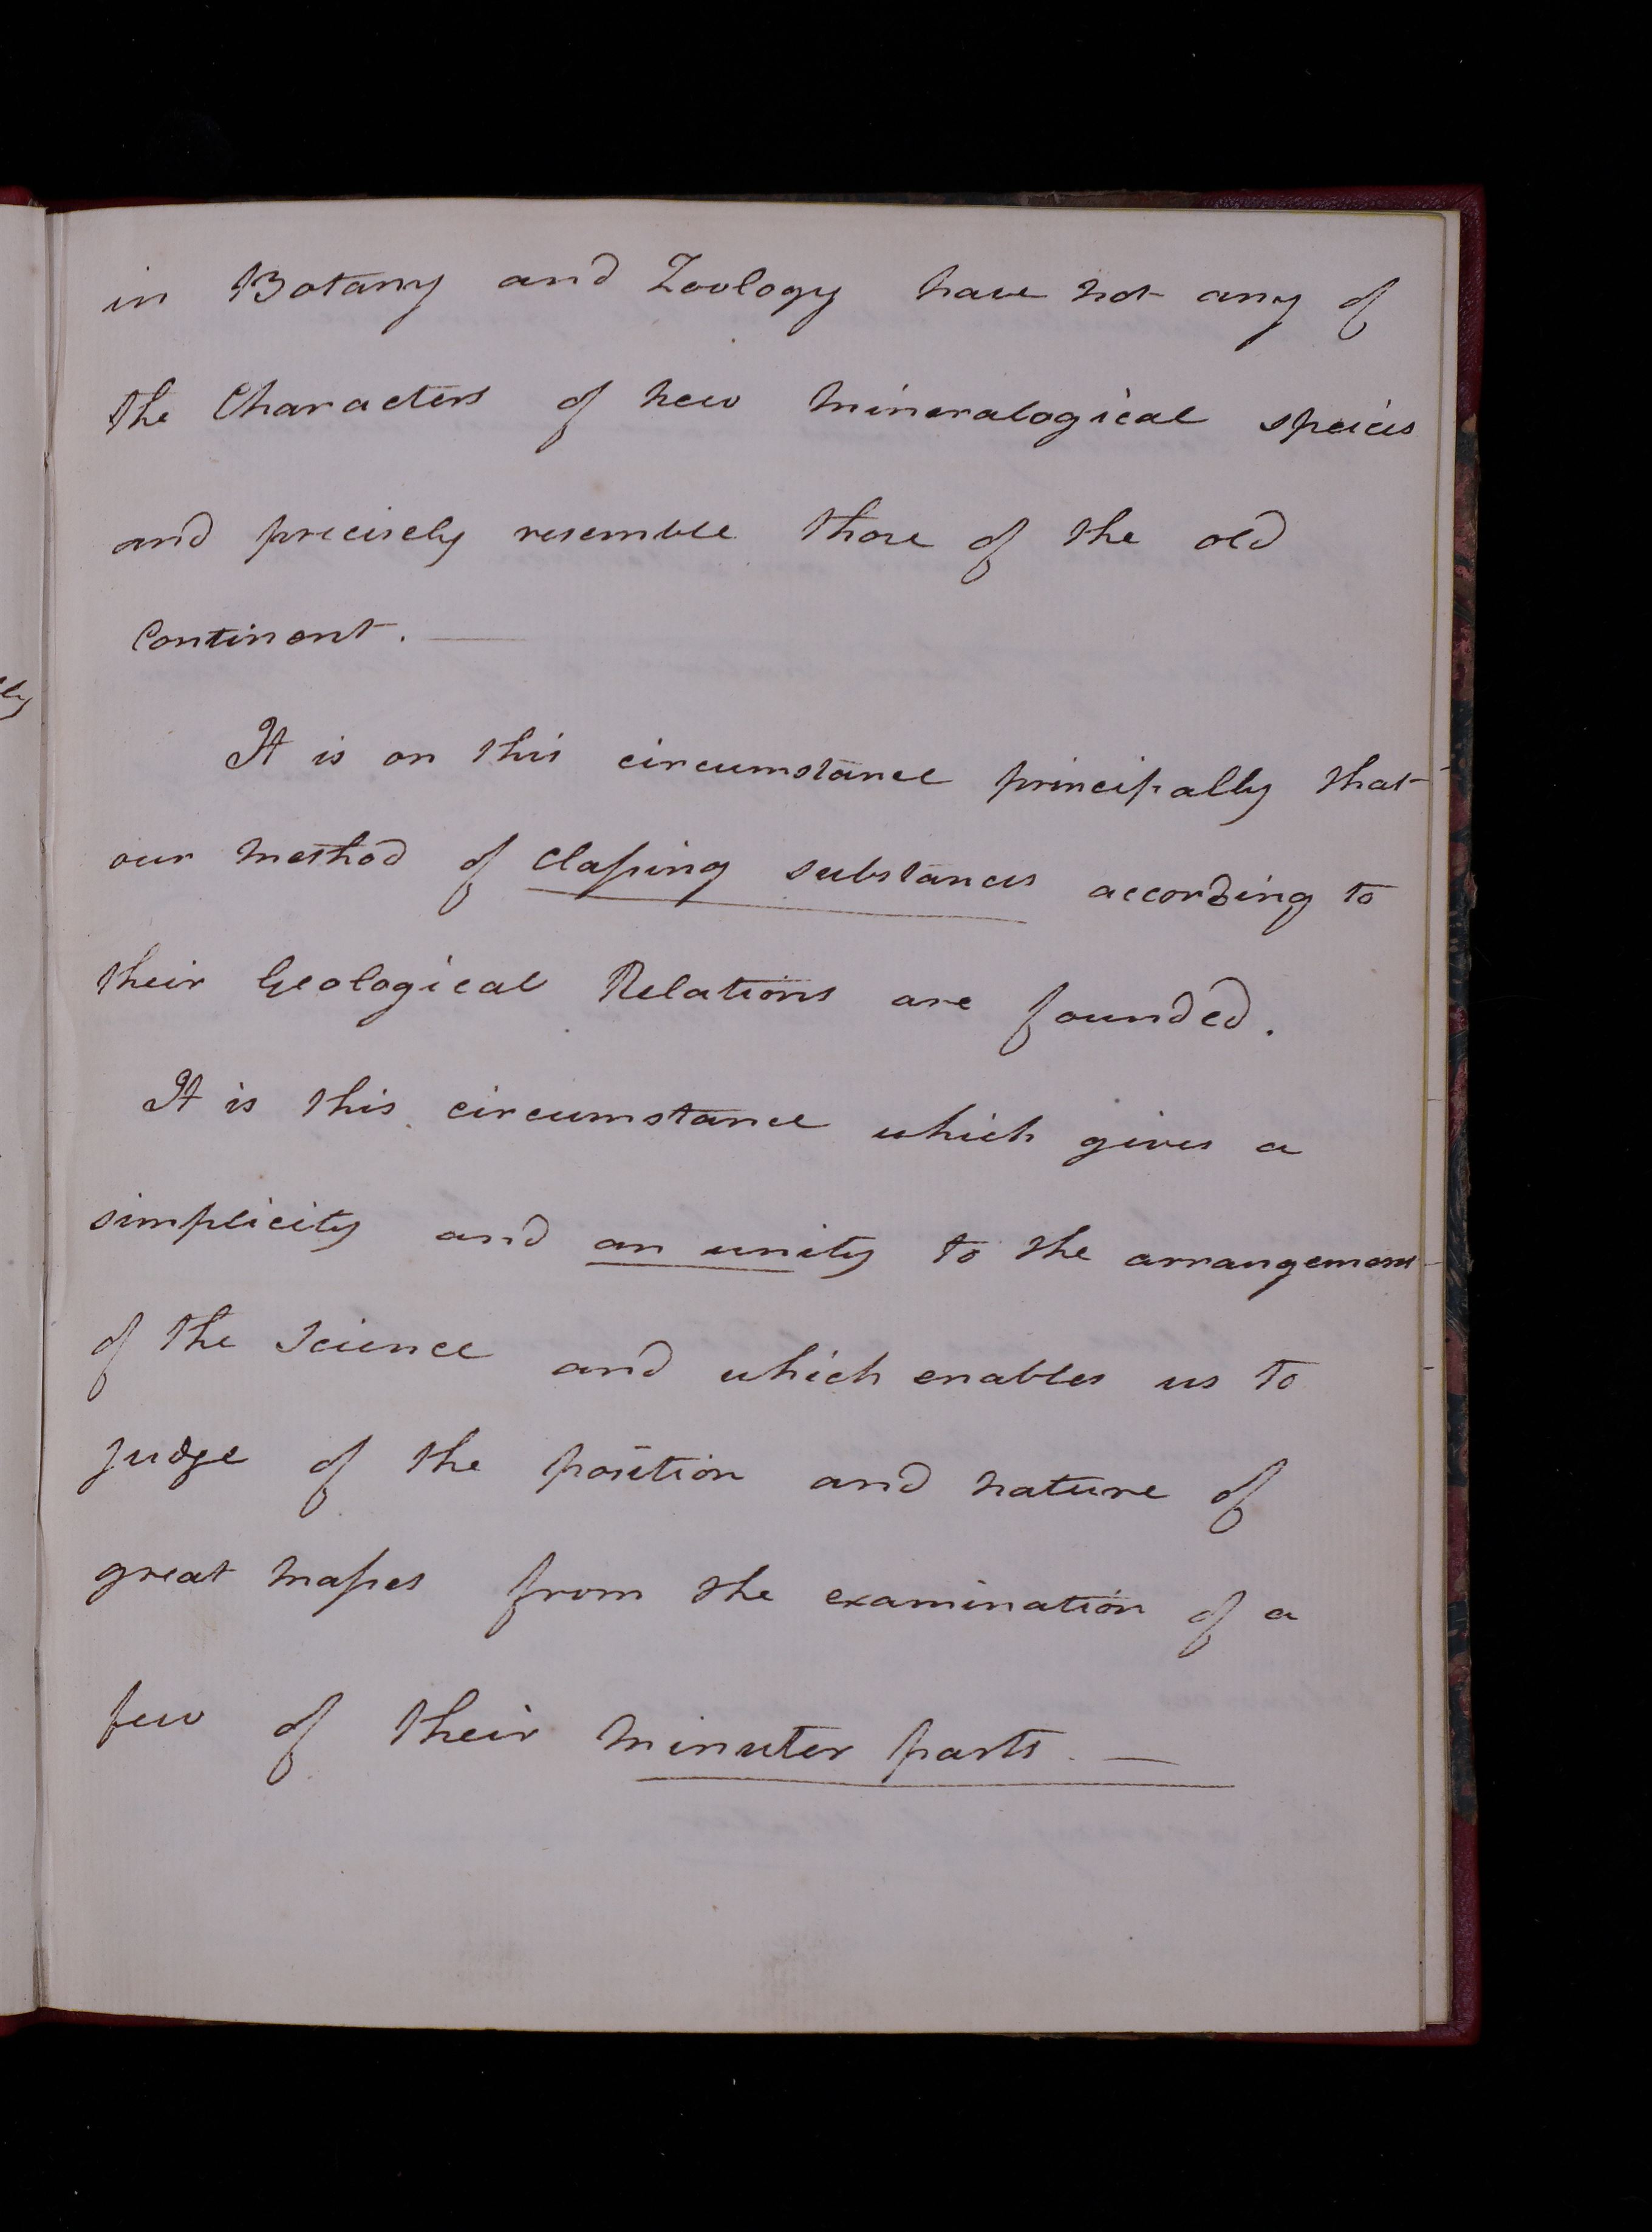 in Botany and Zoology have not any of
the Characters of new mineralogical species
and precisely resemble those of the old
Continent. —
It is on this circumstance principally that
our method of claſsing substances according to
their Geological Relations are founded.
It is this circumstance which gives a
simplicity and an unity to the arrangement
of the Science and which enables us to
judge of the position and nature of
great maſses from the examination of a
few of their minuter parts. —